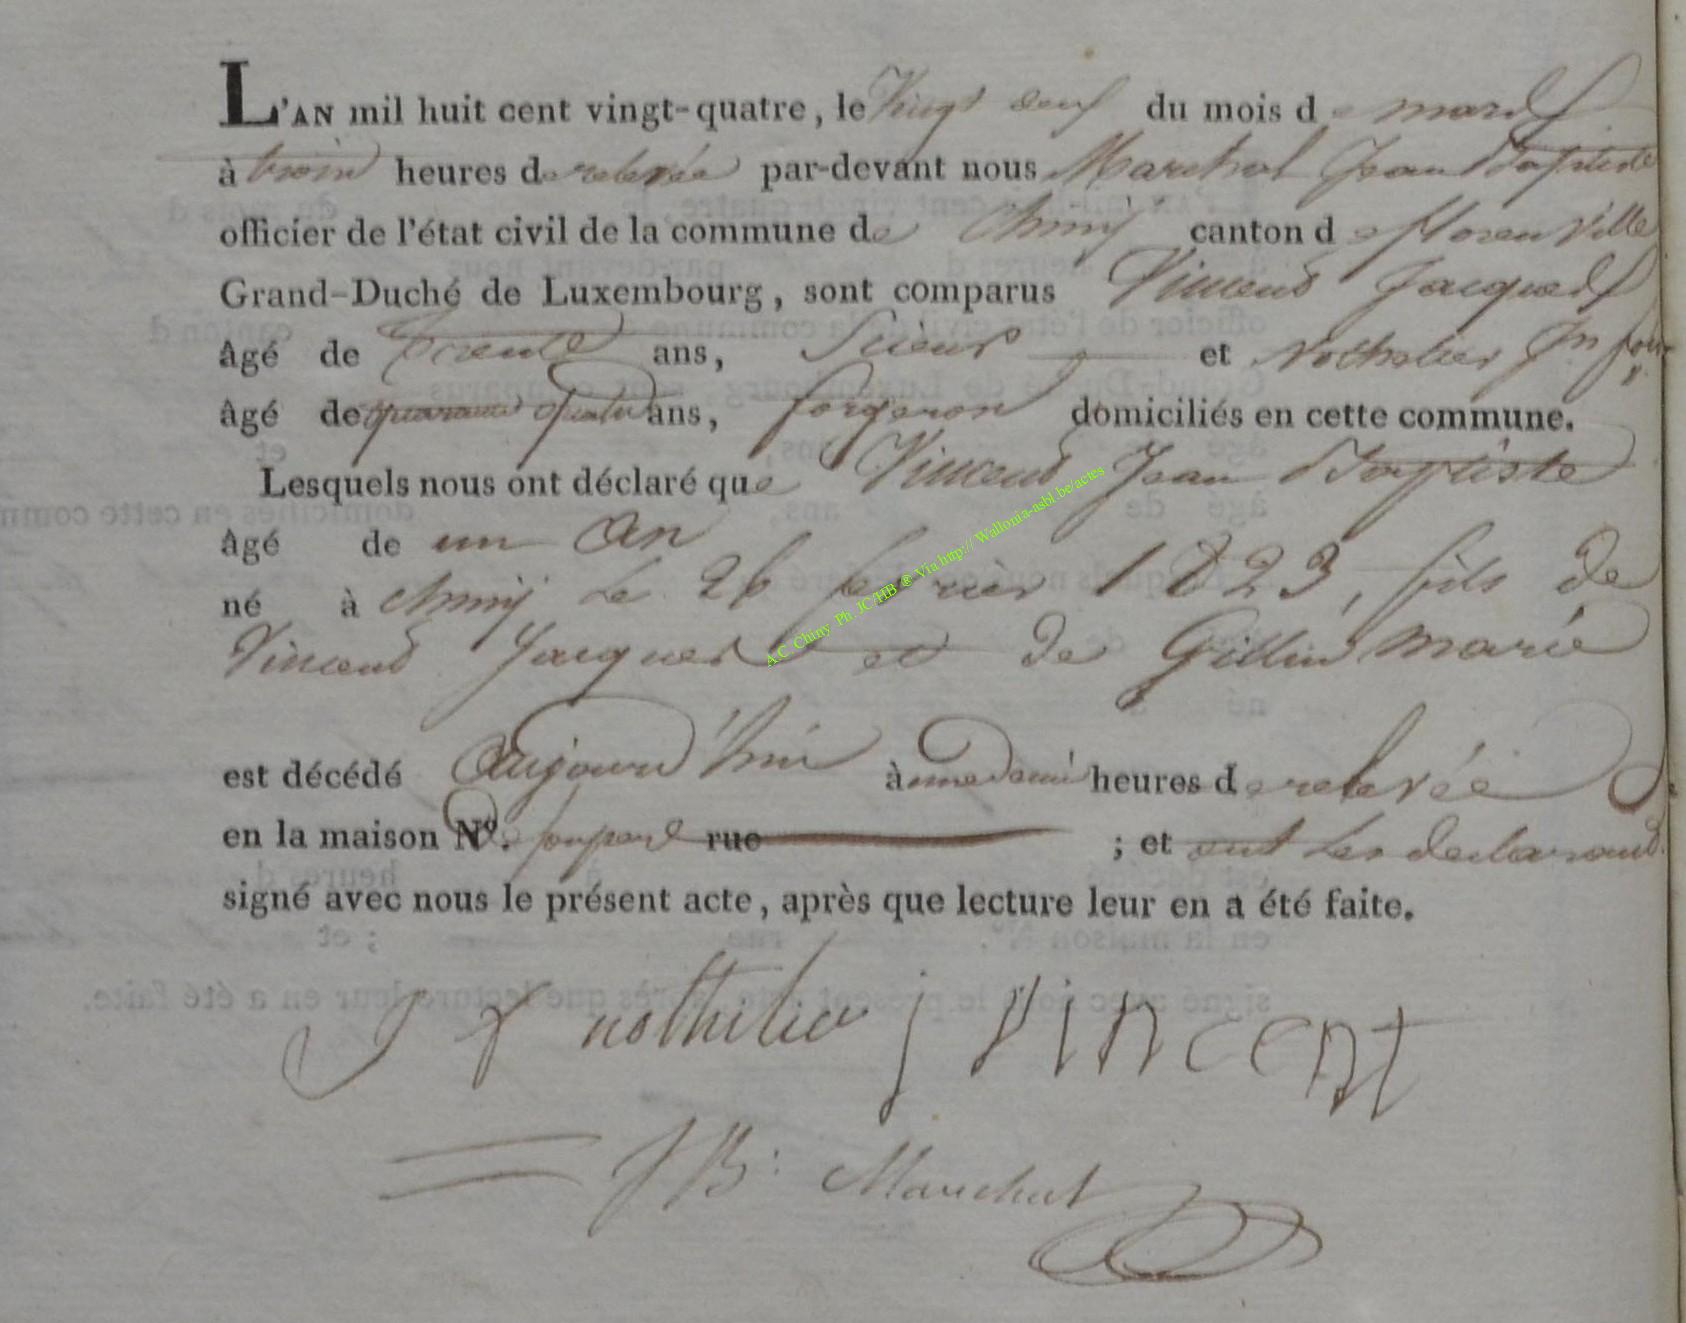 L'AN mil huit cent vingt-quatre, le Vingt neuf du mois de mars
à trois heures de relevée par-devant nous Marchal Jean Baptiste
officier de l'état civil de la commune de Chiny canton de florenville
Grand-Duché de Luxembourg, sont comparus Vincend Jacques
âgé de trente ans, Scieur et Jn
âgé de quarante quatre ans, forgeron domiciliés en cette commune.
Lesquels nous ont déclaré que Vincend Jean Baptiste
âgé de un an
né à chiny Le 26 fevrier 1823, fils de
Vincend Jacques et de Gillin marie
est décédé aujourd'hui à une demi heures de relevée
en la maison N°. de son pere rue ; et ont Les declarand
signé avec nous le présent acte, après que lecture leur en a été faite.
nothelier j vincent
JB: Marchal
A.C. Chiny Ph. JC/HB ® Via http:// Wallonia-asbl.be/actes